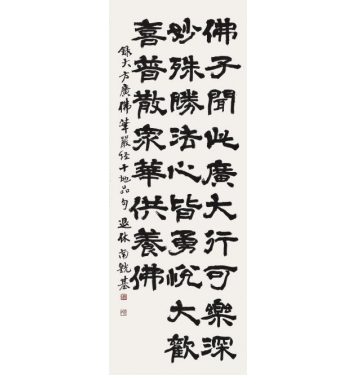 佛子聞此廣大行可樂深
妙殊勝法心皆勇悅大歡
喜普散眾華供養佛
錄大方廣佛華嚴經十地品句 退休 南毓基